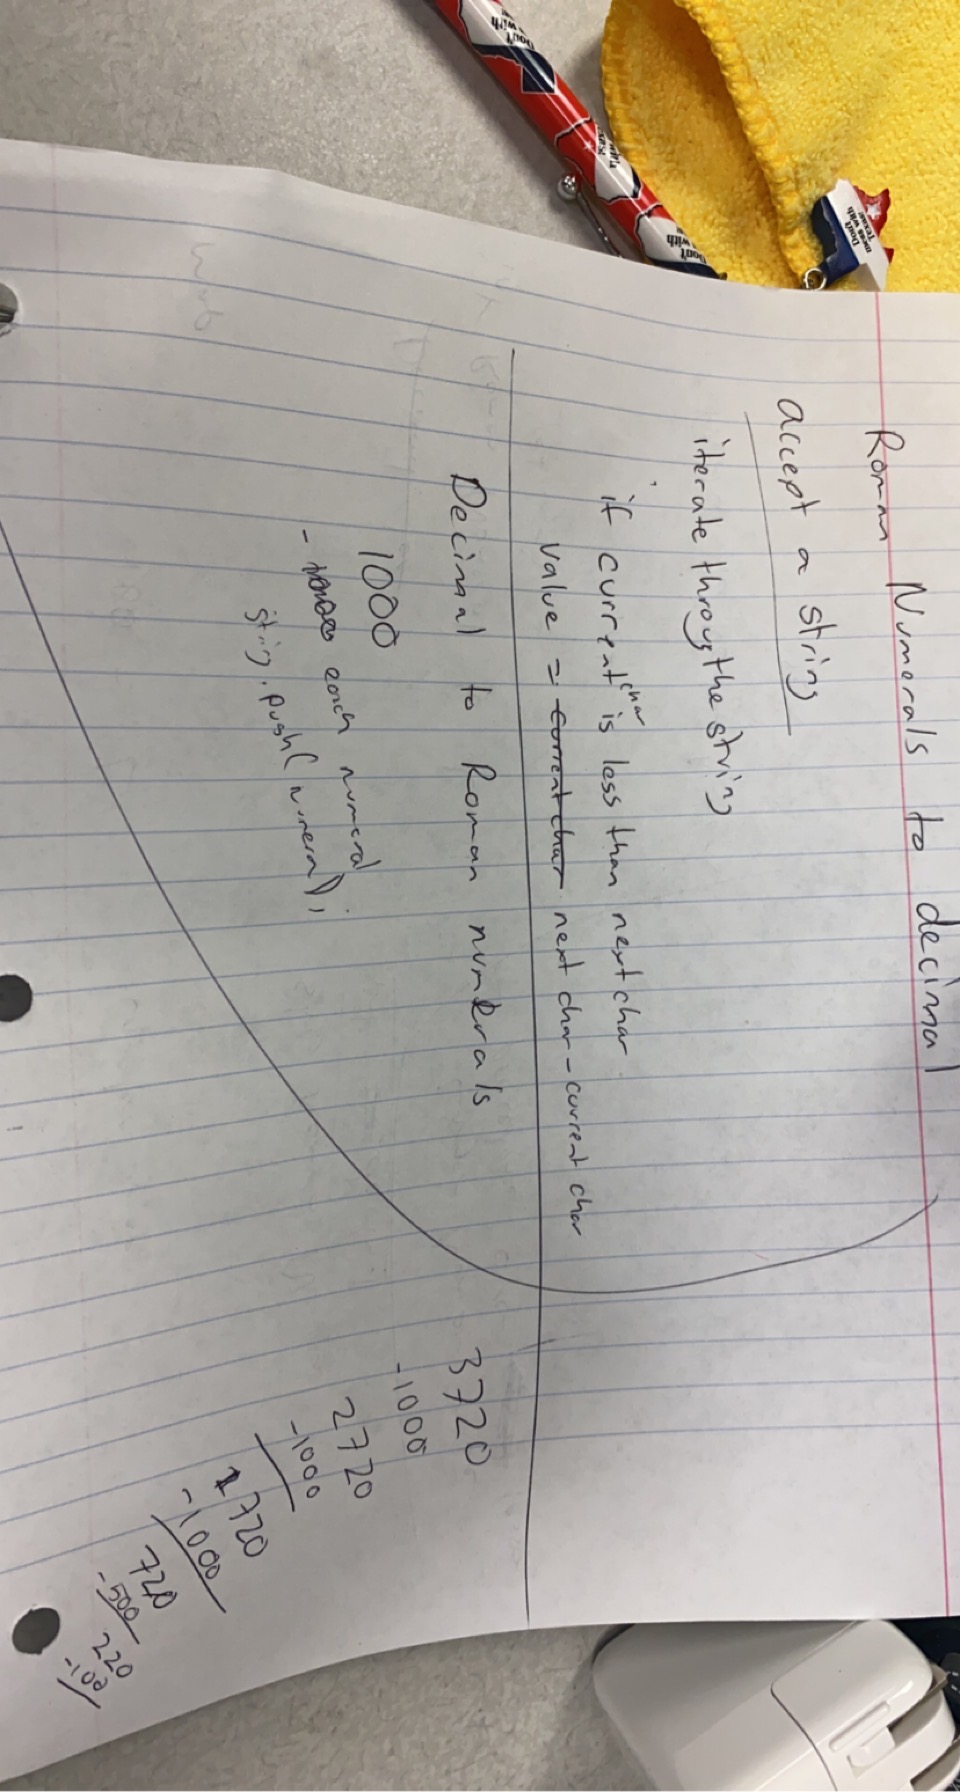 Roman Numerals to decimal
accept a string
iterate throug the string
if current char is less than next char
value = current char next char - current char
Decimal to Roman numerals
1000
- each numeral
string.push(numeral);
3720
-1000
2720
-1000
1720
-1000
720
-500
220
-100
Don't mess with Texas